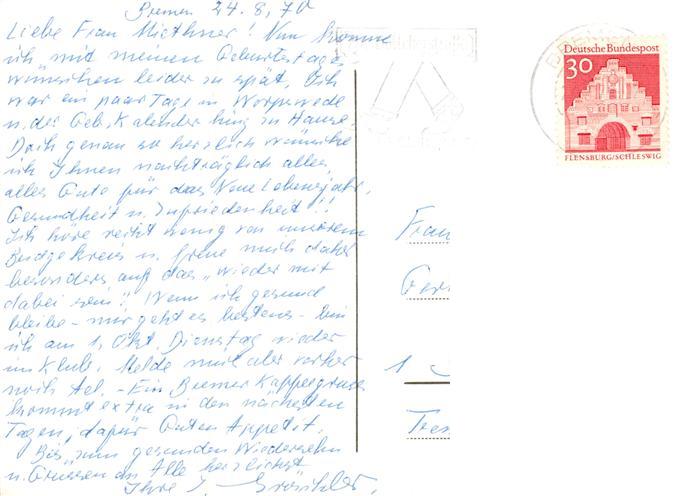 Bremen 24.8.70
Liebe Frau Miethner! Nun komme
ich mit meinen Geburtstags
wünschen leider zu spät. Ich
war ein paar Tage in Worpswede
u. der Geb. Kalender hing zu Hause.
Doch genau so herzlich wünsche
ich Ihnen nachträglich alles,
alles Gute für das Neue Lebensjahr,
Gesundheit u. Zufriedenheit!!
Ich höre recht wenig von unserem
Bridgekreis u. freue mich daher
besonders auf das "wieder mit
dabei sein"! Wenn ich gesund
bleibe - mir geht es bestens - bin
ich am 1. Okt. Dienstag wieder
im Klub. Melde mich aber vorher
noch tel. - Ein Bremer
kommt extra in den nächsten
Tagen, dafür Guten Appetit.
Bis zum gesunden Wiedersehn
u. Grüssen an Alle herzlichst
Ihre
Deutsche Bundespost
30
FLENSBURG/SCHLESWIG
Frau
1